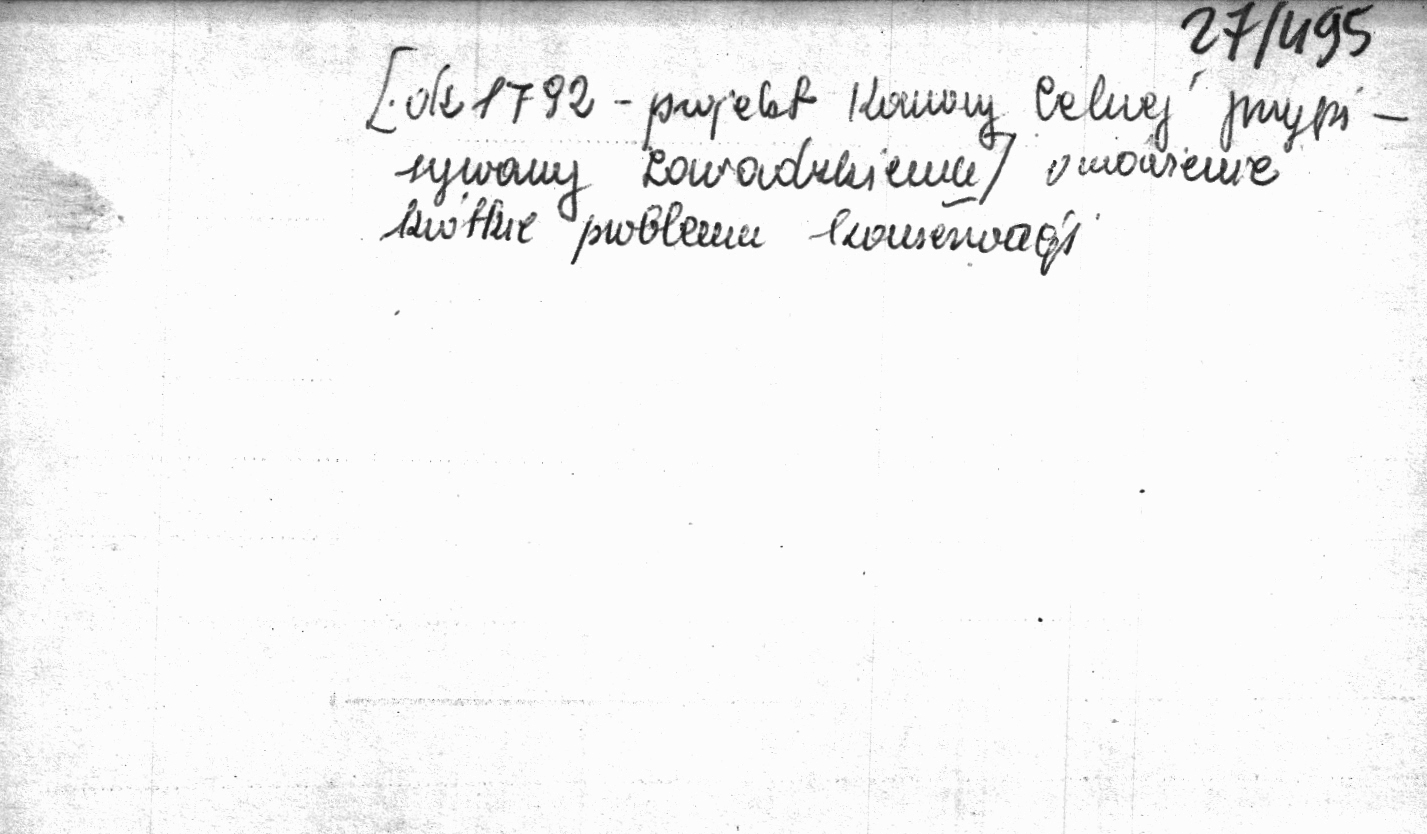 27/495
[ok 1792 - projekt Komory Celnej przypi-
sywany Zawadzkiemu] omówienie
krótkie problemu konserwacji